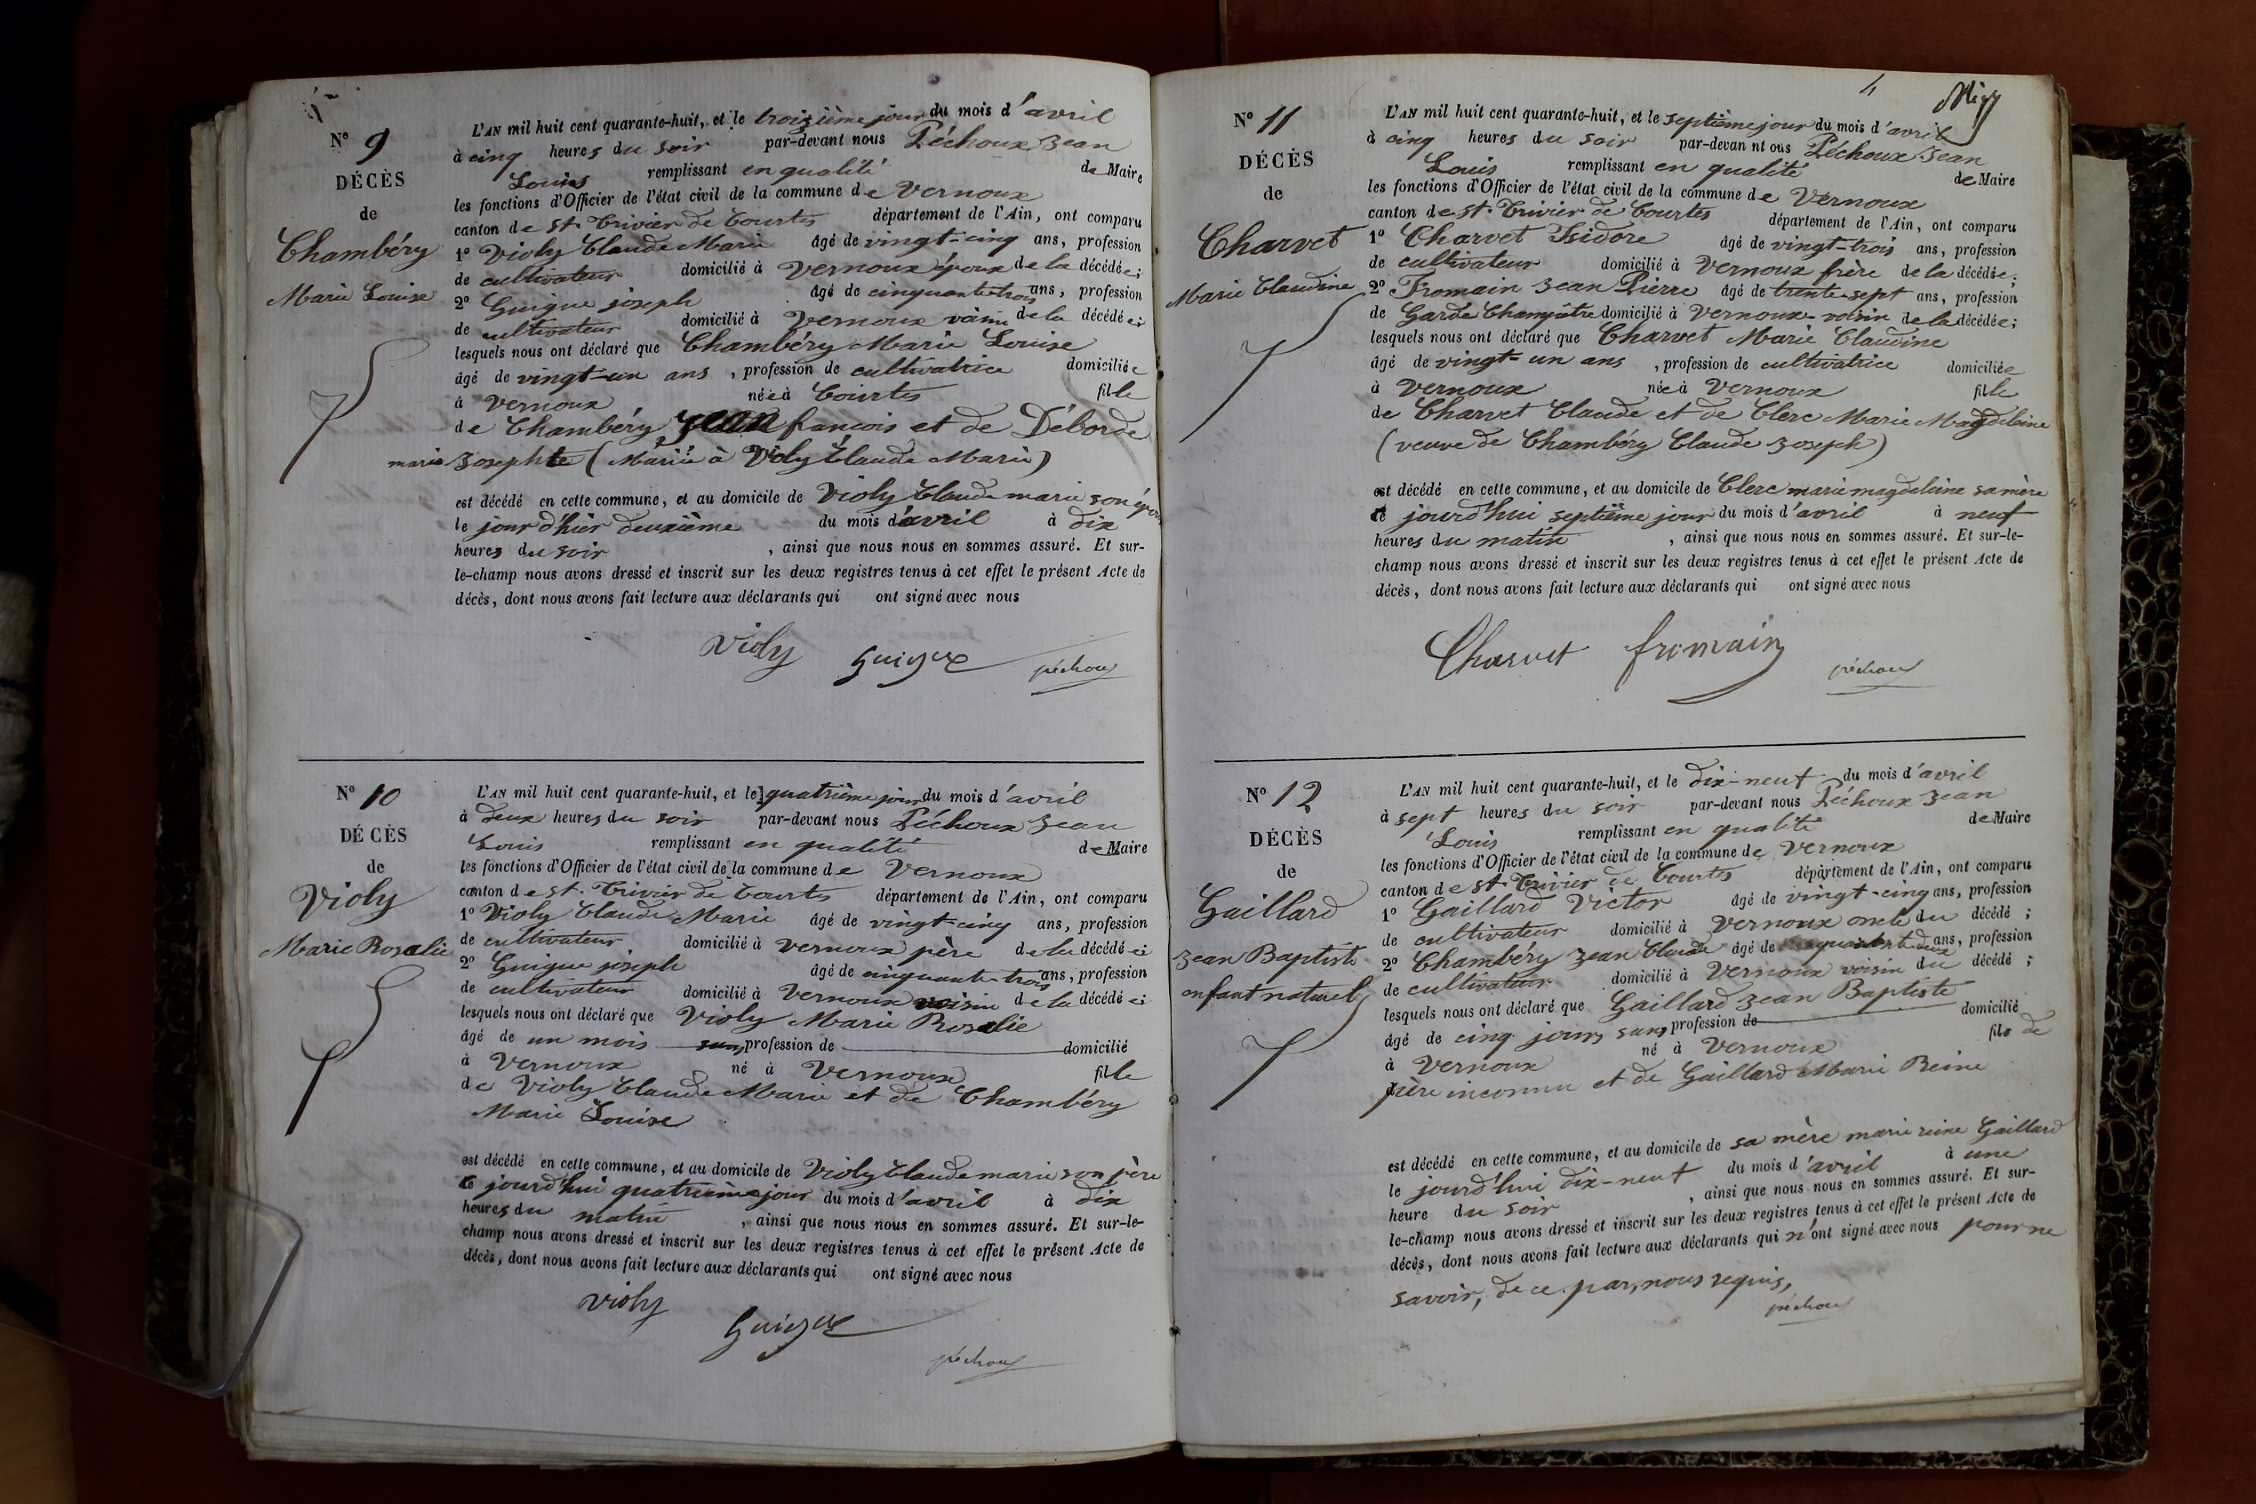 N° 9
DÉCÈS
de
Chambéry
Marie Louise
L'AN mil huit cent quarante-huit, et le troisième jour du mois d'avril
à cinq heures du soir par-devant nous Péchoux Jean
Louis remplissant en qualité de Maire
les fonctions d'Officier de l'état civil de la commune de Vernoux
canton de St. Trivier de Courtes département de l'Ain, ont comparu
1° Violy Claude Marie âgé de vingt-cinq ans, profession
de cultivateur domicilié à Vernoux époux de la décédée;
2° Guigue joseph âgé de cinquante-trois ans, profession
de cultivateur domicilié à Vernoux voisin de la décédée;
lesquels nous ont déclaré que Chambéry Marie Louise
âgé de vingt-un ans, profession de cultivatrice domiciliée
à Vernoux née à Courtes fille
de Chambéry Jean françois et de Déborde
marie Josephte (Mariée à Violy Claude Marie)
est décédé en cette commune, et au domicile de Violy Claude marie son époux
le jour d'hier deuxième du mois d'avril à dix
heures du soir, ainsi que nous nous en sommes assuré. Et sur-
le-champ nous avons dressé et inscrit sur les deux registres tenus à cet effet le présent Acte de
décès, dont nous avons fait lecture aux déclarants qui ont signé avec nous
Violy Guigue péchoux
N° 10
DÉCÈS
de
Violy
Marie Rosalie
L'AN mil huit cent quarante-huit, et le quatrième jour du mois d'avril
à deux heures du soir par-devant nous Péchoux Jean
Louis remplissant en qualité de Maire
les fonctions d'Officier de l'état civil de la commune de Vernoux
canton de St. Trivier de Courtes département de l'Ain, ont comparu
1° Violy Claude Marie âgé de vingt-cinq ans, profession
de cultivateur domicilié à Vernoux père de la décédée;
2° Guigue joseph âgé de cinquante-trois ans, profession
de cultivateur domicilié à Vernoux voisin de la décédée;
lesquels nous ont déclaré que Violy Marie Rosalie
âgé de un mois sans profession de domicilié
à Vernoux né à Vernoux fille
de Violy Claude Marie et de Chambéry
Marie Louise
est décédé en cette commune, et au domicile de Violy Claude marie son père
ce jourd'hui quatrième jour du mois d'avril à dix
heures du matin, ainsi que nous nous en sommes assuré. Et sur-le-
champ nous avons dressé et inscrit sur les deux registres tenus à cet effet le présent Acte de
décès, dont nous avons fait lecture aux déclarants qui ont signé avec nous
Violy
Guigue
péchoux
4
N° 11
DÉCÈS
de
Charvet
Marie Claudine
L'AN mil huit cent quarante-huit, et le septième jour du mois d'avril
à cinq heures du soir par-devan nt ous Péchoux Jean
Louis remplissant en qualité de Maire
les fonctions d'Officier de l'état civil de la commune de Vernoux
canton de St. Trivier de Courtes département de l'Ain, ont comparu
1° Charvet Isidore âgé de vingt-trois ans, profession
de cultivateur domicilié à Vernoux frère de la décédée;
2° Fromain Jean Pierre âgé de trente-sept ans, profession
de Garde Champêtre domicilié à Vernoux-voisin de la décédée;
lesquels nous ont déclaré que Charvet Marie Claudine
âgé de vingt-un ans, profession de cultivatrice domiciliée
à Vernoux née à Vernoux fille
de Charvet Claude et de Clerc Marie Magdeleine
(veuve de Chambéry Claude Joseph)
est décédé en cette commune, et au domicile de Clerc marie magdeleine sa mère
ce jourd'hui septième jour du mois d'avril à neuf
heures du matin, ainsi que nous nous en sommes assuré. Et sur-le-
champ nous avons dressé et inscrit sur les deux registres tenus à cet effet le présent Acte de
décès, dont nous avons fait lecture aux déclarants qui ont signé avec nous
Charvet fromain péchoux
N° 12
DÉCÈS
de
Gaillard
Jean Baptiste
enfant naturel
L'AN mil huit cent quarante-huit, et le dix-neuf du mois d'avril
à sept heures du soir par-devant nous Péchoux Jean
Louis remplissant en qualité de Maire
les fonctions d'Officier de l'état civil de la commune de Vernoux
canton de St. Trivier de Courtes département de l'Ain, ont comparu
1° Gaillard Victor âgé de vingt-cinq ans, profession
de cultivateur domicilié à Vernoux oncle du décédé;
2° Chambéry Jean Claude âgé de ans, profession
de cultivateur domicilié à Vernoux voisin du décédé;
lesquels nous ont déclaré que Gaillard Jean Baptiste
âgé de cinq jours sans profession de domicilié
à Vernoux né à Vernoux fils de
père inconnu et de Gaillard Marie Reine
est décédé en cette commune, et au domicile de sa mère marie reine Gaillard
le jourd'hui dix-neuf du mois d'avril à une
heure du soir, ainsi que nous nous en sommes assuré. Et sur-
le-champ nous avons dressé et inscrit sur les deux registres tenus à cet effet le présent Acte de
décès, dont nous avons fait lecture aux déclarants qui n'ont signé avec nous pour ne
savoir, de ce par, nous requis,
péchoux